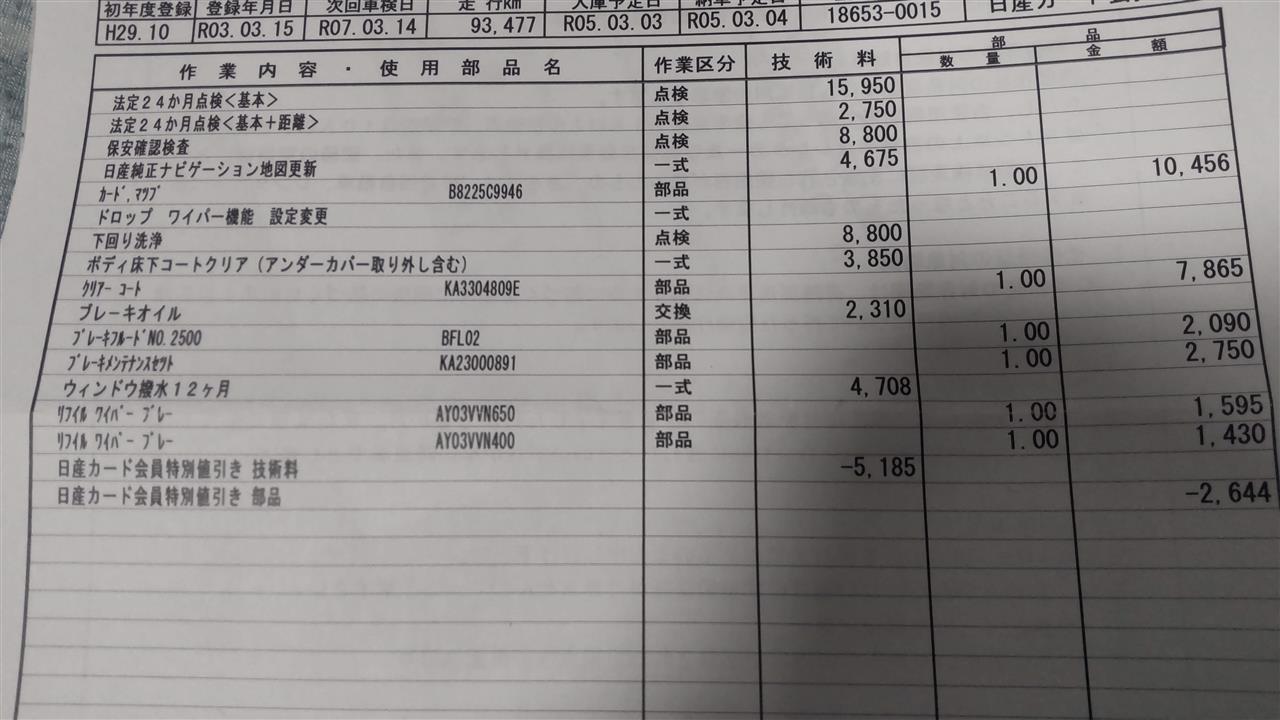 初年度登録 登録年月日 次回車検日 走 行km 入庫予定日 納車予定日
H29.10 R03.03.15 R07.03.14 93,477 R05.03.03 R05.03.04 18653-0015
作 業 内 容 ・ 使 用 部 品 名 作業区分 技 術 料 部 品
数 量 金 額
法定24か月点検<基本> 点検 15,950
法定24か月点検<基本+距離> 点検 2,750
保安確認検査 点検 8,800
日産純正ナビゲーション地図更新 一式 4,675
ｶｰﾄﾞ,ﾏﾂﾌﾟ B8225C9946 部品 1.00 10,456
ドロップ ワイパー機能 設定変更 一式
下回り洗浄 点検 8,800
ボディ床下コートクリア(アンダーカバー取り外し含む) 一式 3,850
ｸﾘｱｰ ｺｰﾄ KA3304809E 部品 1.00 7,865
ブレーキオイル 交換 2,310
ﾌﾞﾚｰｷﾌﾙｰﾄﾞNO.2500 BFL02 部品 1.00 2,090
ﾌﾞﾚｰｷﾒﾝﾃﾅﾝｽｾﾂﾄ KA23000891 部品 1.00 2,750
ウィンドウ撥水12ヶ月 一式 4,708
ﾘﾌｲﾙ ﾜｲﾊﾟｰ ﾌﾞﾚｰ AY03VVN650 部品 1.00 1,595
ﾘﾌｲﾙ ﾜｲﾊﾟｰ ﾌﾞﾚｰ AY03VVN400 部品 1.00 1,430
日産カード会員特別値引き 技術料 -5,185
日産カード会員特別値引き 部品 -2,644